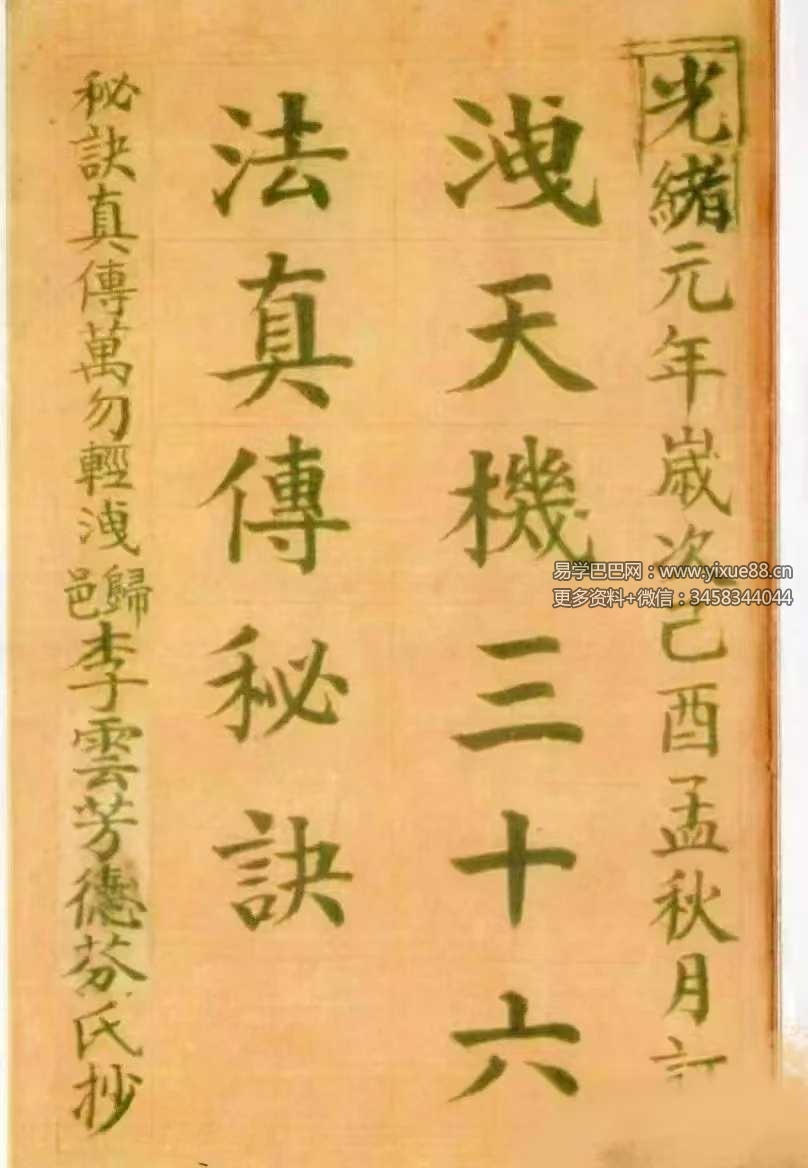 光緒元年歲次己酉孟秋月訂
洩天機三十六
法真傳秘訣
秘訣真傳萬勿輕洩歸邑李雲芳德芬氏抄
易学巴巴网：www.yixue88.cn
更多资料+微信：3458344044